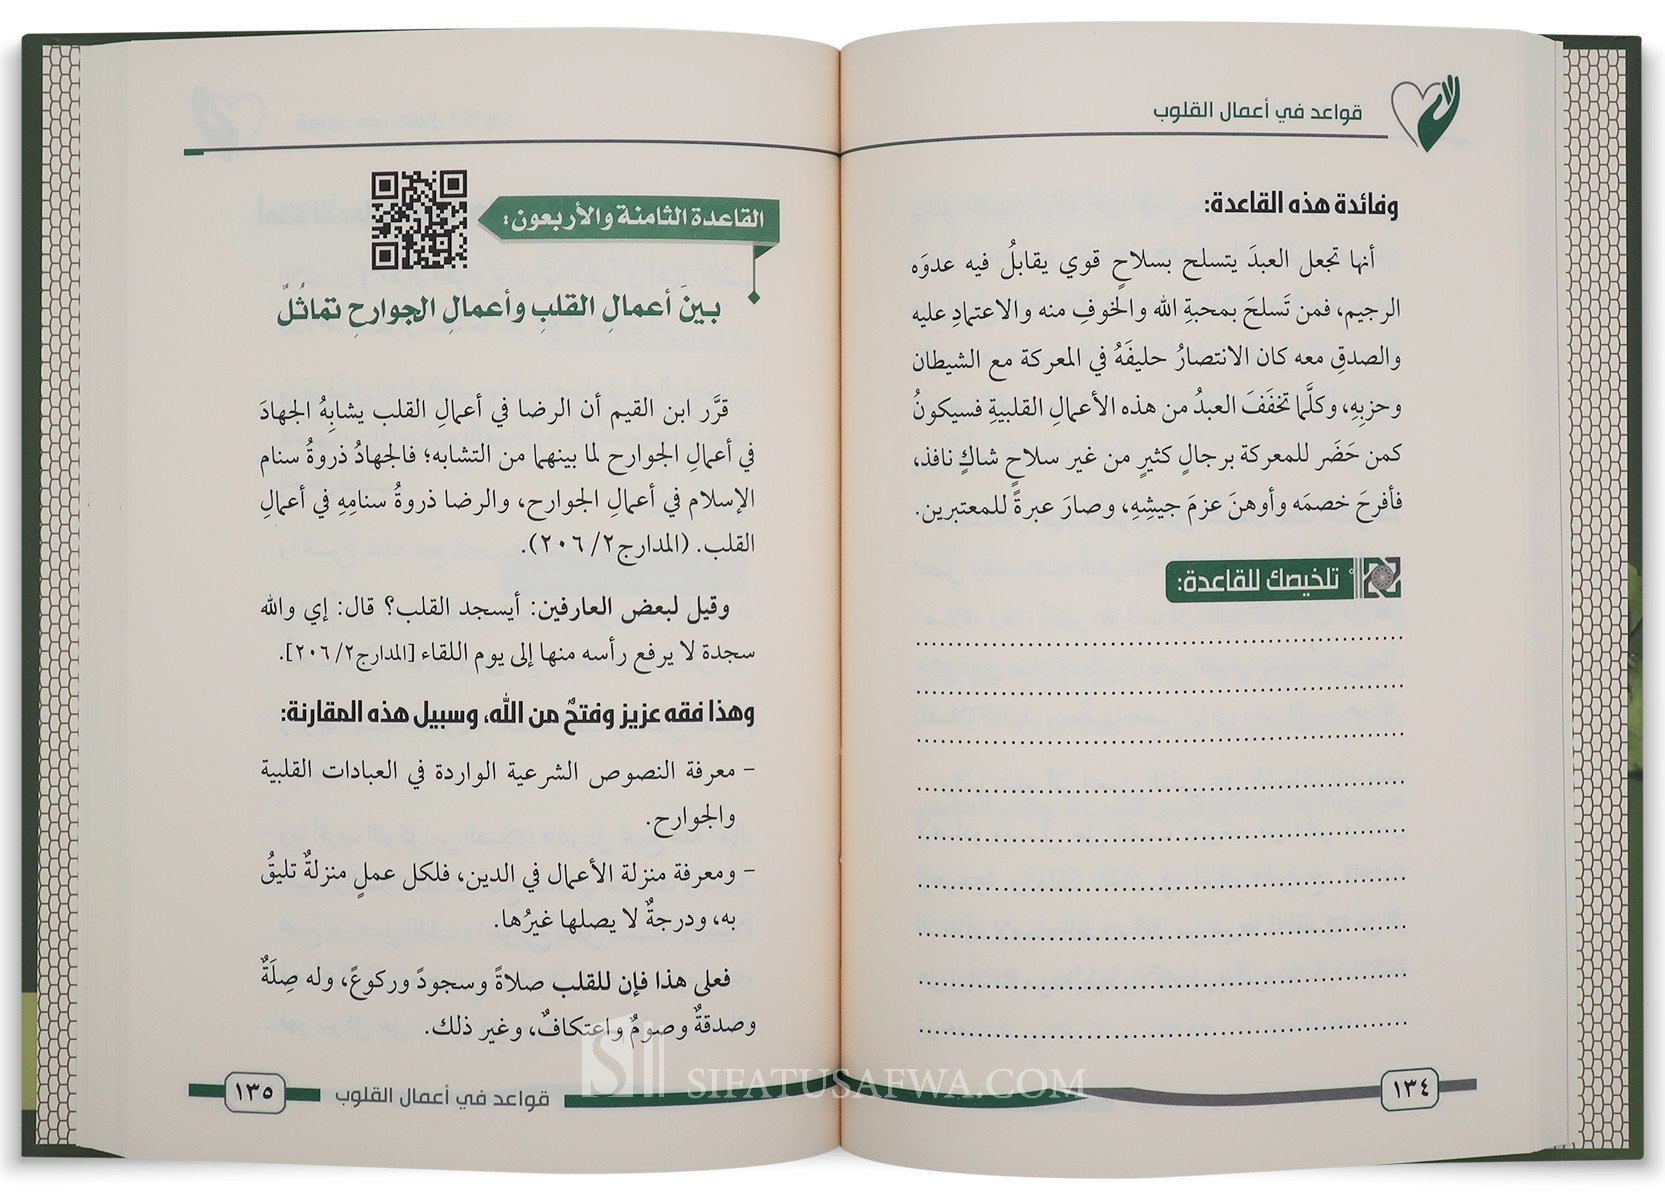 قواعد في أعمال القلوب
وفائدة هذه القاعدة:
أنها تجعل العبدَ يتسلح بسلاحٍ قوي يقابلُ فيه عدوَه
الرجيم، فمن تَسلحَ بمحبةِ الله والخوفِ منه والاعتمادِ عليه
والصدقِ معه كان الانتصارُ حليفَهُ في المعركة مع الشيطان
وحزبِهِ، وكلَّما تخفَفَ العبدُ من هذه الأعمالِ القلبيةِ فسيكونُ
كمن حَضَر للمعركة برجالٍ كثيرٍ من غير سلاحٍ شاكٍ نافذ،
فأفرحَ خصمَه وأوهنَ عزمَ جيشِهِ، وصارَ عبرةً للمعتبرين.
تلخيصك للقاعدة:
١٣٤
القاعدة الثامنة والأربعون:
بينَ أعمالِ القلبِ وأعمالِ الجوارحِ تماثُلٌ
قرَّر ابن القيم أن الرضا في أعمالِ القلب يشابِهُ الجهادَ
في أعمالِ الجوارح لما بينهما من التشابه؛ فالجهادُ ذروةُ سنام
الإسلام في أعمالِ الجوارح، والرضا ذروةُ سنامِهِ في أعمالِ
القلب. (المدارج٢/ ٢٠٦).
وقيل لبعض العارفين: أيسجد القلب؟ قال: إي والله
سجدة لا يرفع رأسه منها إلى يوم اللقاء [المدارج٢/ ٢٠٦].
وهذا فقه عزيز وفتحٌ من الله، وسبيل هذه المقارنة:
- معرفة النصوص الشرعية الواردة في العبادات القلبية
والجوارح.
- ومعرفة منزلة الأعمال في الدين، فلكل عملٍ منزلةٌ تليقُ
به، ودرجةٌ لا يصلها غيرُها.
فعلى هذا فإن للقلب صلاةً وسجودً وركوعً، وله صِلَةٌ
وصدقةٌ وصومٌ واعتكافٌ، وغير ذلك.
قواعد في أعمال القلوب
١٣٥
SIFATUSAFWA.COM